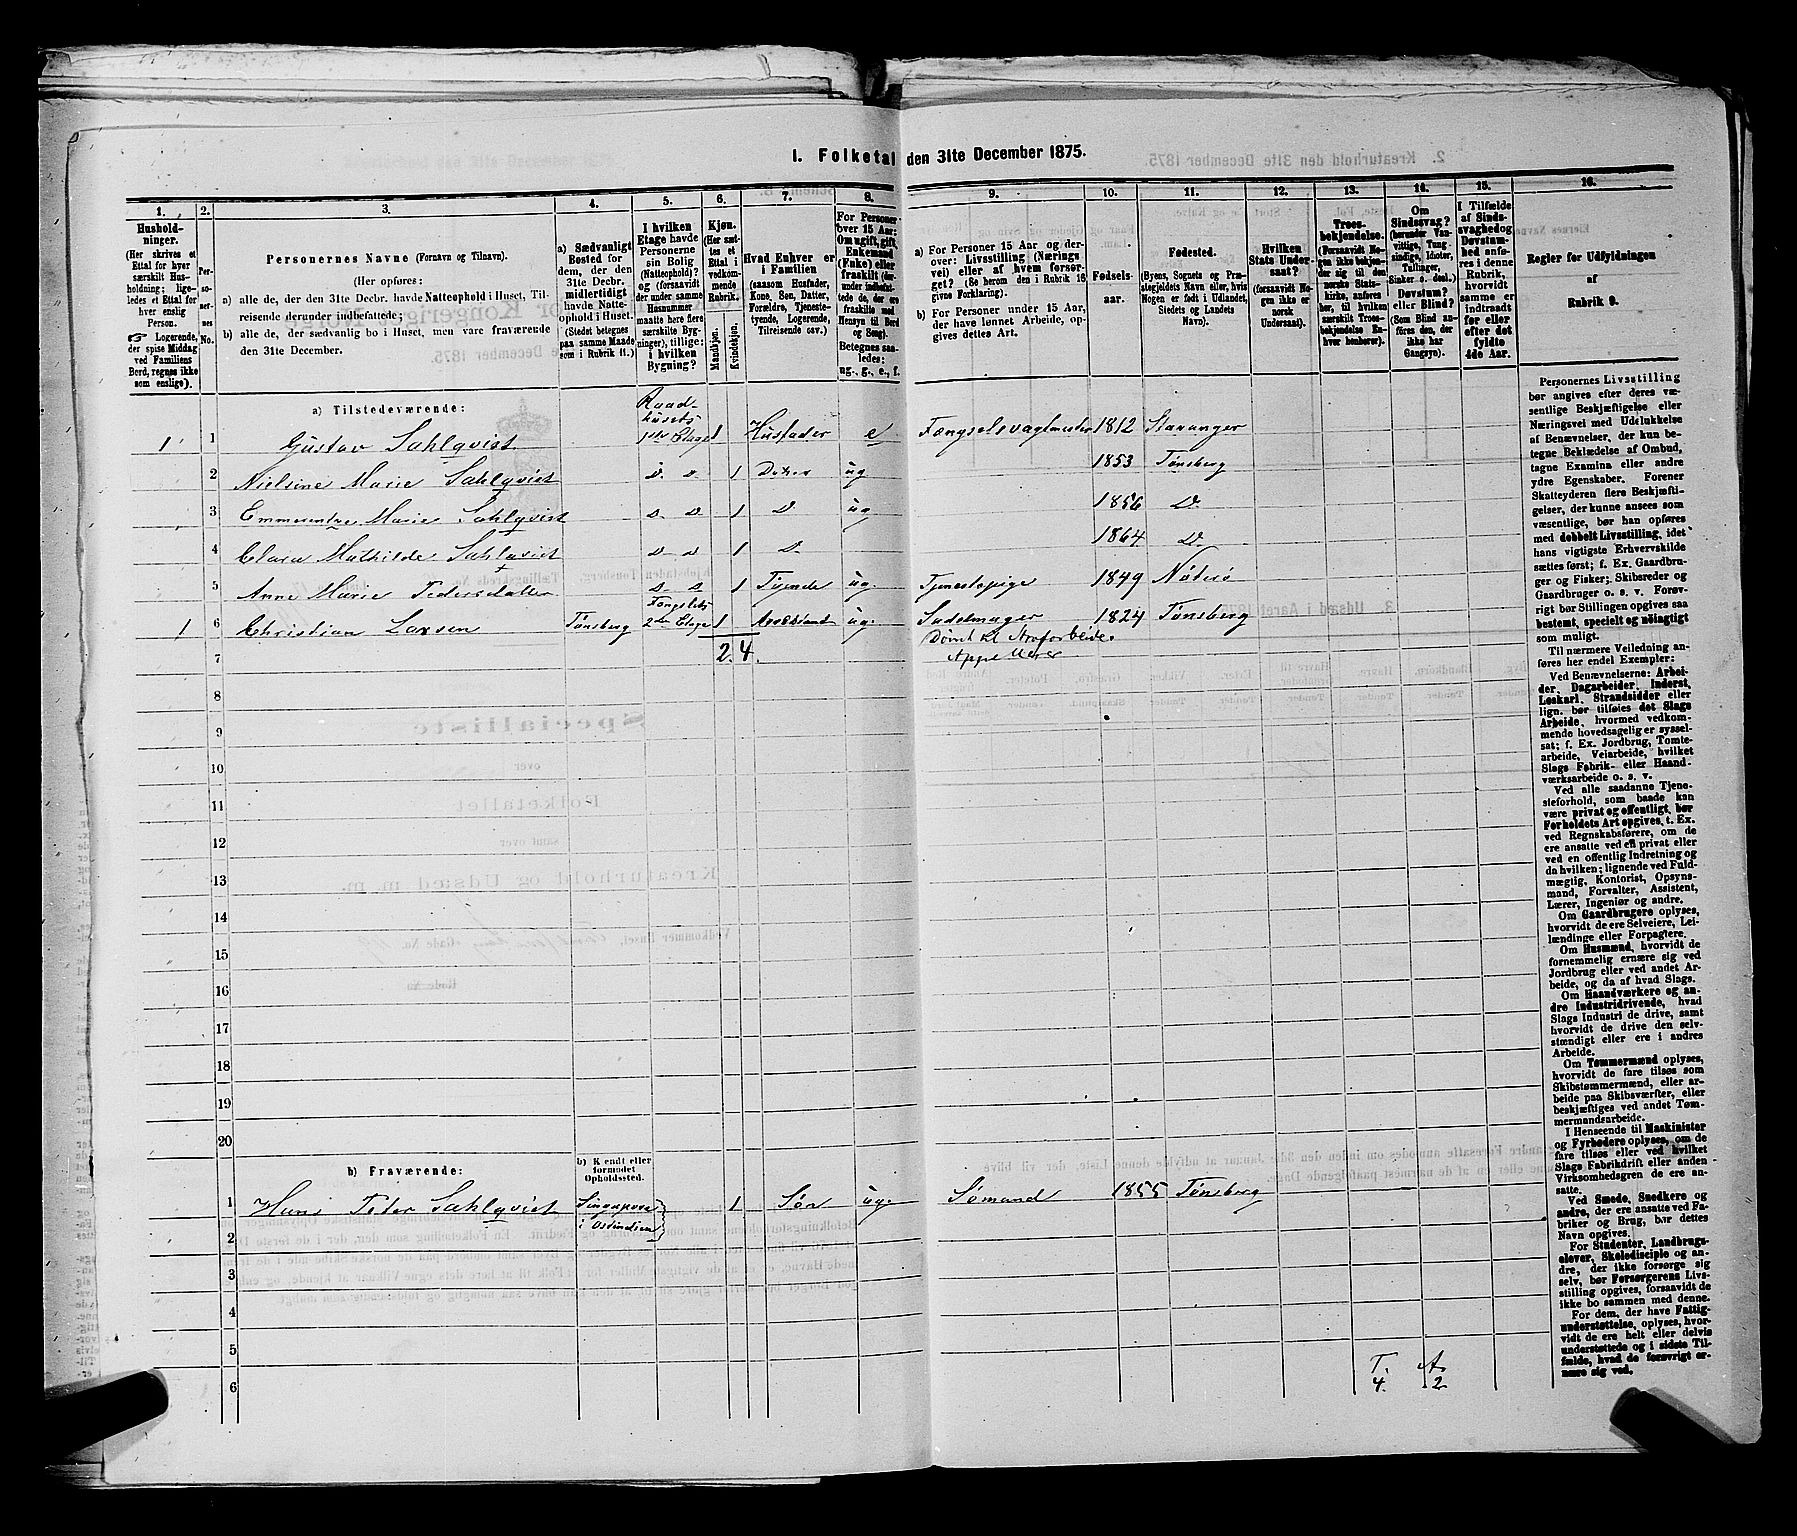 I. Folketal den 31te December 1875.
1. 2. 3. 4. 5. 6. 7. 8. 9. 10. 11. 12. 13. 14. 15. 16.
Hushold-
ninger.
(Her skrives et
Ettal for hver
særskilt Hus-
holdning; lige-
ledes et Ettal for
hver enslig
Person.
☞ Logerende,
der spise Middag
ved Familiens
Bord, regnes ikke
som enslige).
Personernes Navne (Fornavn og Tilnavn).
(Her opføres:
a) alle de, der den 31te Decbr. havde Natteophold i Huset, Til-
reisende derunder indbefattede;
b) alle de, der sædvanlig bo i Huset, men vare fraværende
den 31te December.
a) Sædvanligt
Bosted for
dem, der den
31te Decbr.
midlertidigt
havde Natte-
ophold i Huset.
(Stedet betegnes
paa samme Maade
som i Rubrik 11.)
I hvilken
Etage havde
Personerne
sin Bolig
(Natteophold)?
(forsaavidt
der under samme
Husnummer
maatte høre flere
særskilte Byg-
ninger), tillige:
i hvilken
Bygning?
Kjøn.
(Her sæt-
tes et
Ettal i
vedkom-
mende
Rubrik.
Mandkjøn.
Kvindekjøn.
Hvad Enhver er
i Familien
(saasom Husfader,
Kone, Søn, Datter,
Forældre, Tjeneste-
tyende, Logerende,
Tilreisende osv.)
For Personer
over 15 Aar:
Om ugift, gift,
Enkemand
(Enke) eller
fraskilt
Betegnes saa-
ledes:
ug., g., e., f.
a) For Personer 15 Aar og der-
over: Livsstilling (Nærings-
vei) eller af hvem forsør-
get? (Se herom den i Rubrik 16
givne Forklaring).
b) For Personer under 15 Aar,
der have lønnet Arbeide, op-
gives dettes Art.
Fødsels-
aar.
Fødested.
(Byens, Sognets og Præ-
stegjeldets Navn eller, hvis
Nogen er født i Udlandet,
Stedets og Landets
Navn).
Hvilken
Stats Under-
saat?
(forsaavidt No-
gen ikke er
norsk
Undersaat).
Troes-
bekjendelse.
(Forsaavidt No-
gen ikke bekjen-
der sig til den
norske Stats-
kirke, anføres
her, til hvilken
særskilt Troes-
bekjendelse En-
hver henhører).
Om
Sindssvag?
(herunder Van-
vittige, Tung-
sindige, Idioter,
Tullinger,
Sinker o. desl.)
Døvstum?
eller Blind?
(Som Blind an-
føres den, der
ikke har
Gangsyn).
I Tilfælde
af Sinds-
svaghed og
Døvstum-
hed anfø-
res i denne
Rubrik,
hvorvidt
samme er
indtraadt
før eller
efter det
fyldte
4de Aar.
Regler for Udfyldningen
af
Rubrik 9.
a) Tilstedeværende:
Raad-
husets
1 1 Gustav Sahlqvist 1ste Etage 1 Husfader e Fængselsvagtmester 1812 Stavanger
2 Nielsine Marie Sahlqvist D. D 1 Datter ug 1853 Tønsberg
3 Emmerentze Marie Sahlqvist D D 1 D ug 1856 D
4 Clara Mathilde Sahlqvist D D 1 D. 1864. D.
5 Anne Marie Pedersdatter D. D 1 Tyende ug. Tjenestepige 1849 Nøterø
Fængslets
1 6 Christian Larsen Tønsberg 2den Etage 1 Arrestant ug. Sadelmager 1824 Tønsberg
Dømt til Strafarbeide.
2. 4.
7
8
9
10
11
12
13
14
15
16
17
18
19
20
b) Fraværende:
b) Kendt eller
formodet
Opholdssted.
1 Hans Peder Sahlqvist Singapore 1 Søn ug. Sømand 1855 Tønsberg
2 i Ostindien
3
4
5
6
T. A.
4. 2
Personernes Livsstilling
bør angives efter deres væ-
sentlige Beskjæftigelse eller
Næringsvei med Udelukkelse
af Benævnelser, der kun be-
tegne Beklædelse af Ombud,
tagne Examina eller andre
ydre Egenskaber. Forener
Skatteyderen flere Beskjæfti-
gelser, der kunne ansees som
væsentlige, bør han opføres
med dobbelt Livsstilling, idet
hans vigtigste Erhvervskilde
sættes først; f. Ex. Gaardbru-
ger og Fisker; Skibsreder og
Gaardbruger o. s. v. Forøv-
rigt bør Stillingen opgives saa
bestemt, specielt og nøiagtigt
som muligt.
Til nærmere Veiledning an-
føres her endel Exempler:
Ved Benævnelserne: Arbei-
der, Dagarbeider, Inderst,
Løskarl, Strandsidder eller
lign. bør tilføies det Slags
Arbeide, hvormed vedkom-
mende hovedsagelig er syssel-
sat; f. Ex. Jordbrug, Tomte-
arbeide, Veiarbeide, hvilket
Slags Fabrik- eller Haand-
værksarbeide o. s. v.
Ved alle saadanne Tjene-
steforhold, som baade kan
være privat og offentligt, bør
Forholdets Art opgives, t. Ex.
ved Regnskabsførere, om de
ere ansatte ved en privat eller
ved en offentlig Indretning og
da hvilken; lignende ved Fuld-
mægtig, Kontorist, Opsyns-
mand, Forvalter, Assistent,
Lærer, Ingeniør og andre.
Om Gaardbrugere oplyses,
hvorvidt de ere Selveiere, Lei-
lændinge eller Forpagtere.
Om Husmænd, hvorvidt de
fornemmelig ernære sig ved
Jordbrug eller ved andet Ar-
beide, og da af hvad Slags.
Om Haandværkere og an-
dre Industridrivende, hvad
Slags Industri de drive, samt
hvorvidt de drive den selv-
stændigt eller ere i andres
Arbeide.
Om Tømmermænd oplyses,
hvorvidt de fare tilsøs som
Skibstømmermænd, eller ar-
beide paa Skibsværfter, eller
beskjæftiges ved andet Tøm-
mermandsarbeide.
I Henseende til Maskinister
og Fyrbødere oplyses, om de
fare tilsøs eller ved hvilket
Slags Fabrikdrift eller anden
Virksomhedsgren de ere an-
satte.
Ved Smede, Snedkere og
andre, der ere ansatte ved Fa-
briker og Brug, bør dettes
Navn opgives.
For Studenter, Landbrugs-
elever, Skoledisciple og an-
dre, der ikke forsørge sig
selv, bør Forsørgerens Livs-
stilling opgives, forsaavidt de
ikke bo sammen med denne.
For dem, der have Fattig-
understøttelse, oplyses, hvor-
vidt de ere helt eller delvis
understøttede og i sidste Til-
fælde, hvad de forøvrigt er-
nære sig ved.